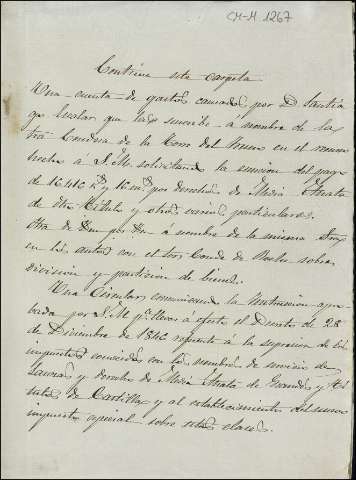 CM-M 1267
Contiene esta carpeta
Una cuenta de gastos causados por D. Santia
go que la suscribe a nombre de la
tra Condesa de la Torre del en el recurso
hecho a S.M. solicitando la esencion del pago
de 16.416 rs y 16 ms por derechos de Media Anata
de este Título y otros varios particulares.
Otra de por a nombre de la misma
en los autos con el Conde de sobre
división y particion de bienes.
Una Circular comunicando la Instruccion apro
bada por S.M. pa. llevar a efecto el Decreto de 28
de Diciembre de 1846 referente a la supresion de los
impuestos conocidos con los nombres de servicio de
Lanzas y derecho de Media Anata de Grandes y Tí
tulos de Castilla y al establecimiento del nuevo
impuesto especial sobre estas clases.